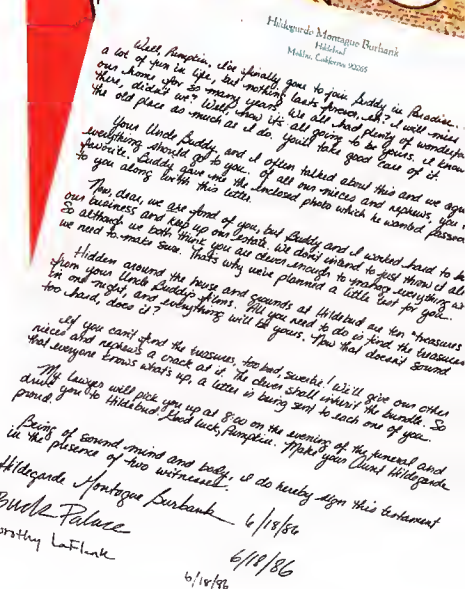 Hildegarde Montague Burbank
Hildebud
Malibu, California 90265
Well, Pumpkin, I've finally gone to join Buddy in Paradise.
a lot of fun in life, but nothing lasts forever, eh? I will miss
our home for so many years. We all had plenty of wonderful
there, didn't we? Well, now it's all going to be yours. I know
the old place as much as I do. You'll take good care of it.
Your Uncle Buddy and I often talked about this and we agre
everything should go to you. Of all our nieces and nephews, you
favorite. Buddy gave me the enclosed photo which he wanted passed
to you along with this letter.
Now, dear, we are fond of you, but Buddy and I worked hard to
our business and keep up our estate. We don't intend to just throw it all
So although we both think you are clever enough to manage everything
we need to make sure. That's why we've planned a little test for you.
Hidden around the house and grounds at Hildebud are ten "treasures
from your Uncle Buddy's films. All you need to do is find the treasures
in one night, and everything will be yours. Now that doesn't sound
too hard, does it?
If you can't find the treasures, too bad, sweetie! We'll give our other
nieces and nephews a crack at it. The clever shall inherit the bundle. So
that everyone knows what's up, a letter is being sent to each one of you.
My lawyer will pick you up at 8:00 on the evening of the funeral and
drive you to Hildebud. Good luck, Pumpkin. Make your Aunt Hildegarde
proud.
Being of sound mind and body, I do hereby sign this testament
in the presence of two witnesses.
Hildegarde Montague Burbank 6/18/86
Buck Palace 6/18/86
orothy LaFlank 6/18/86